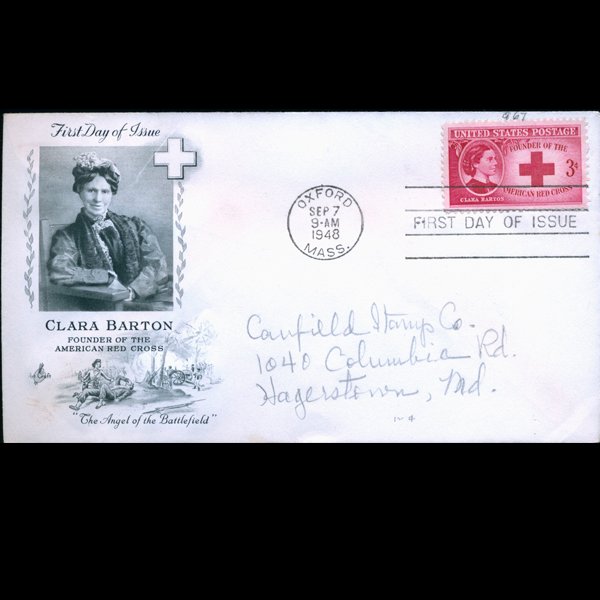 First Day of Issue
CLARA BARTON
FOUNDER OF THE
AMERICAN RED CROSS
"The Angel of the Battlefield"
OXFORD
SEP 7
9-AM
1948
MASS.
967
UNITED STATES POSTAGE
FOUNDER OF THE
3¢
AMERICAN RED CROSS
CLARA BARTON
FIRST DAY OF ISSUE
Canfield Stamp Co.
1040 Columbia Rd.
Hagerstown, Md.